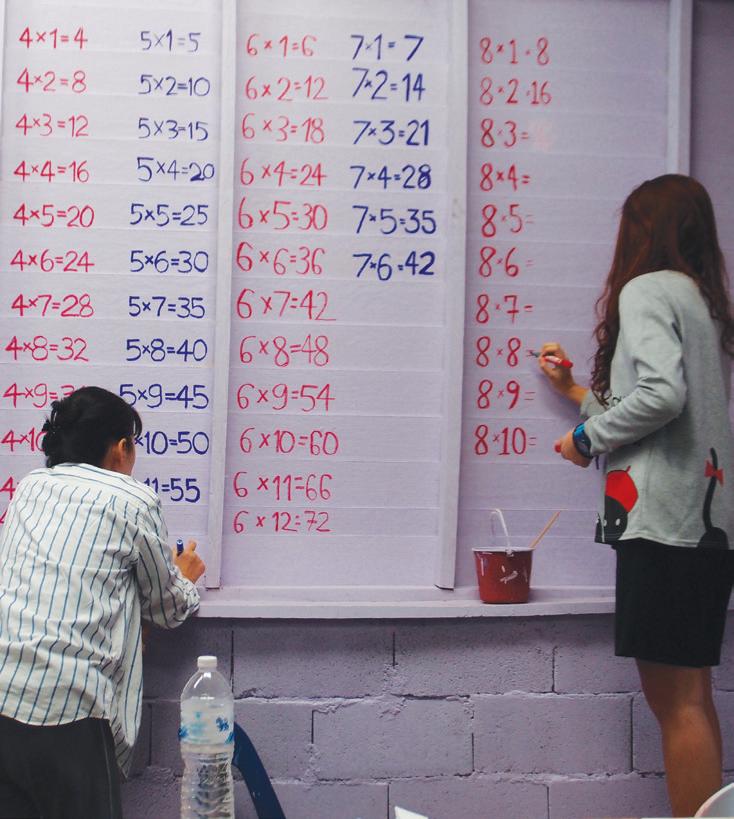 4×1=4
4×2=8
4×3=12
4×4=16
4×5=20
4×6=24
4×7=28
4×8=32
4×9=
4×10
5×1=5
5×2=10
5×3=15
5×4=20
5×5=25
5×6=30
5×7=35
5×8=40
5×9=45
×10=50
11=55
6×1=6
6×2=12
6×3=18
6×4=24
6×5=30
6×6=36
6×7=42
6×8=48
6×9=54
6×10=60
6×11=66
6×12=72
7×1=7
7×2=14
7×3=21
7×4=28
7×5=35
7×6=42
8×1=8
8×2=16
8×3=
8×4=
8×5=
8×6=
8×7=
8×8=
8×9=
8×10=